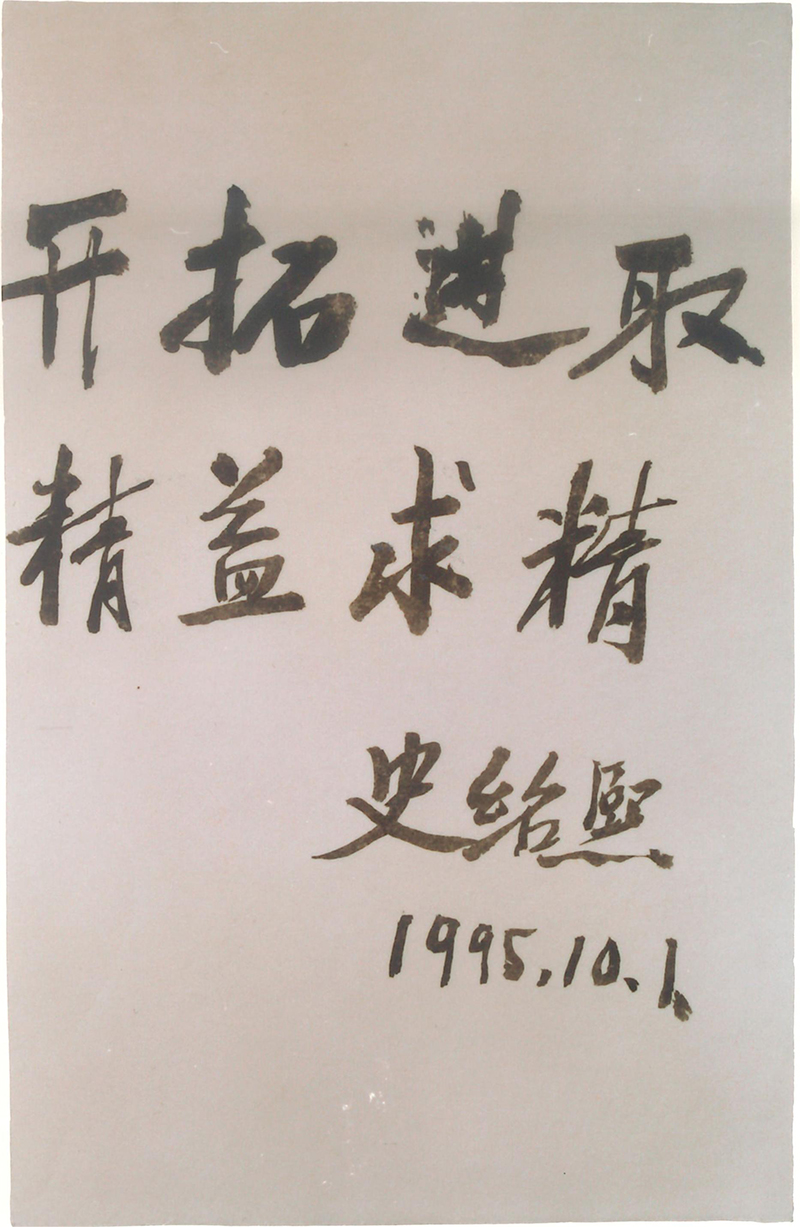 开拓进取
精益求精
史绍熙
1995.10.1